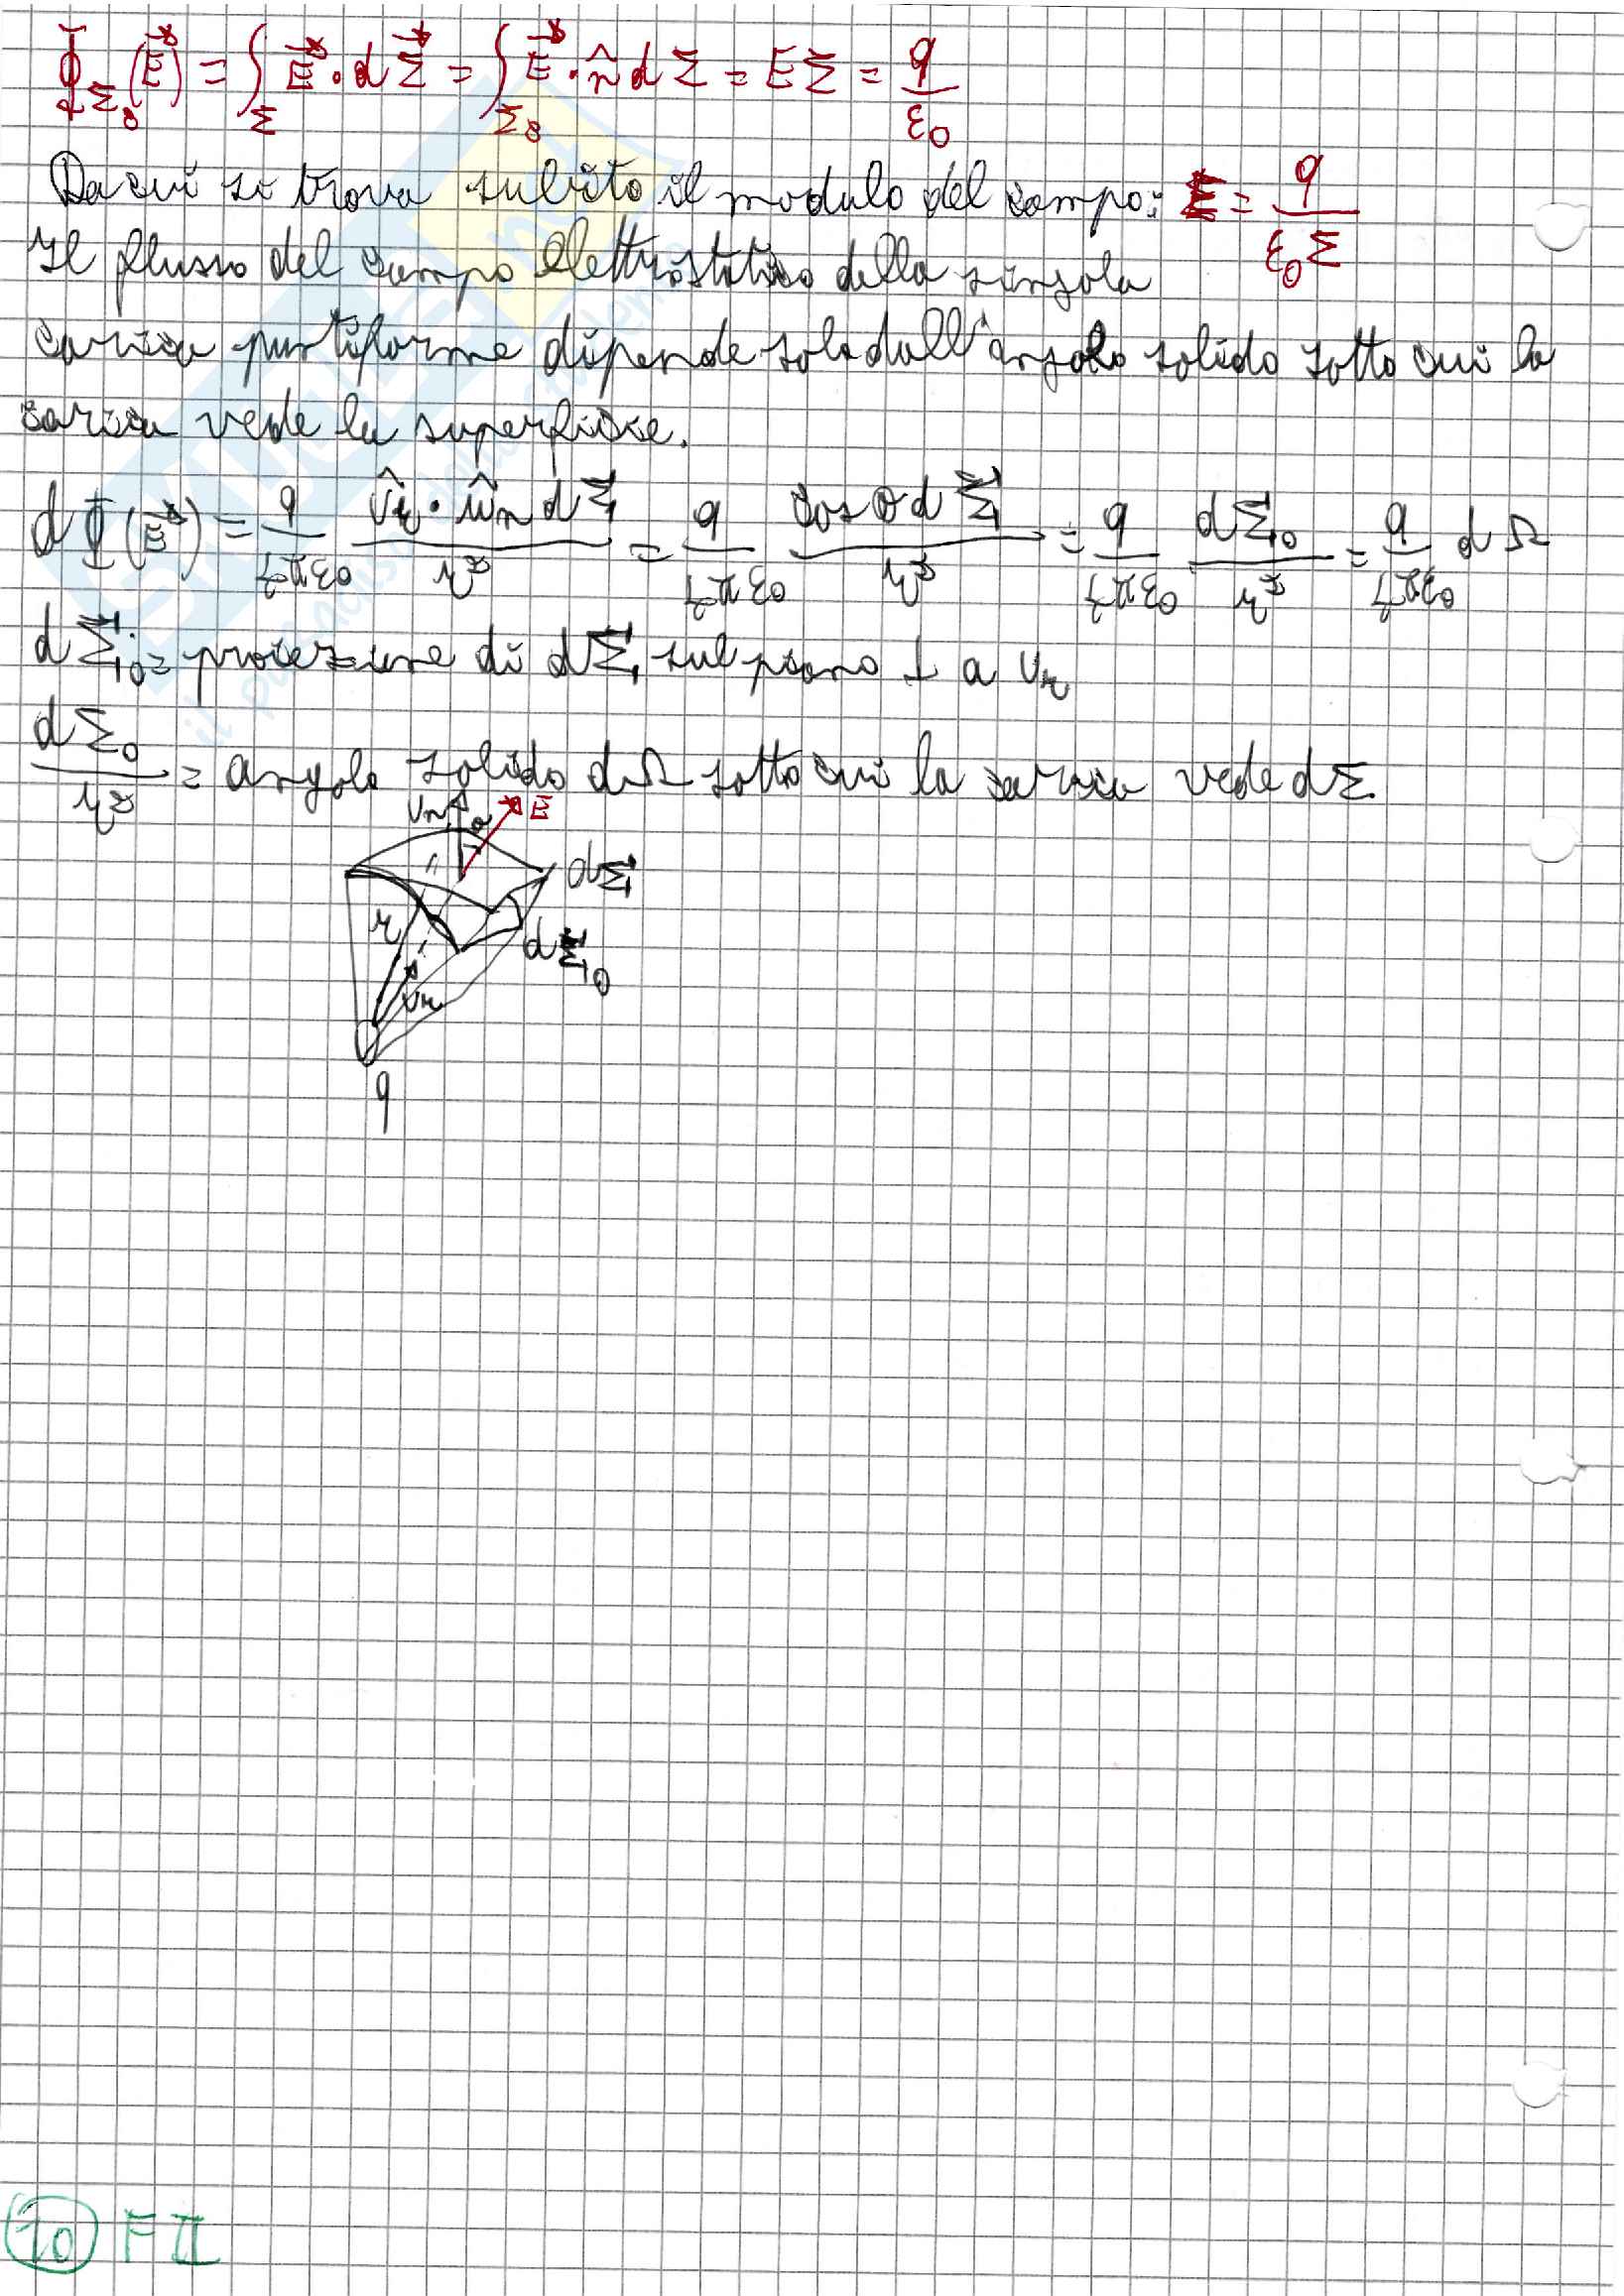 Φ_Σ8 (E) = ∫_Σ E · dΣ = ∫_Σ8 E · n̂ dΣ = EΣ = q/ε0
Da cui si trova subito il modulo del campo: E = q/(ε0 Σ)
Il flusso del campo elettrostatico della singola
carica puntiforme dipende solo dall'angolo solido sotto cui la
carica vede la superficie.
dΦ(E) = q/(4πε0) (ûr · ûn dΣ)/r² = q/(4πε0) (cos θ dΣ)/r² = q/(4πε0) dΣ0/r² = q/(4πε0) dΩ
dΣ0 = proiezione di dΣ sul piano ⊥ a ur
dΣ0/r² = angolo solido dΩ sotto cui la carica vede dΣ.
un θ E
dΣ
r
dΣ0
ur
q
10 FII